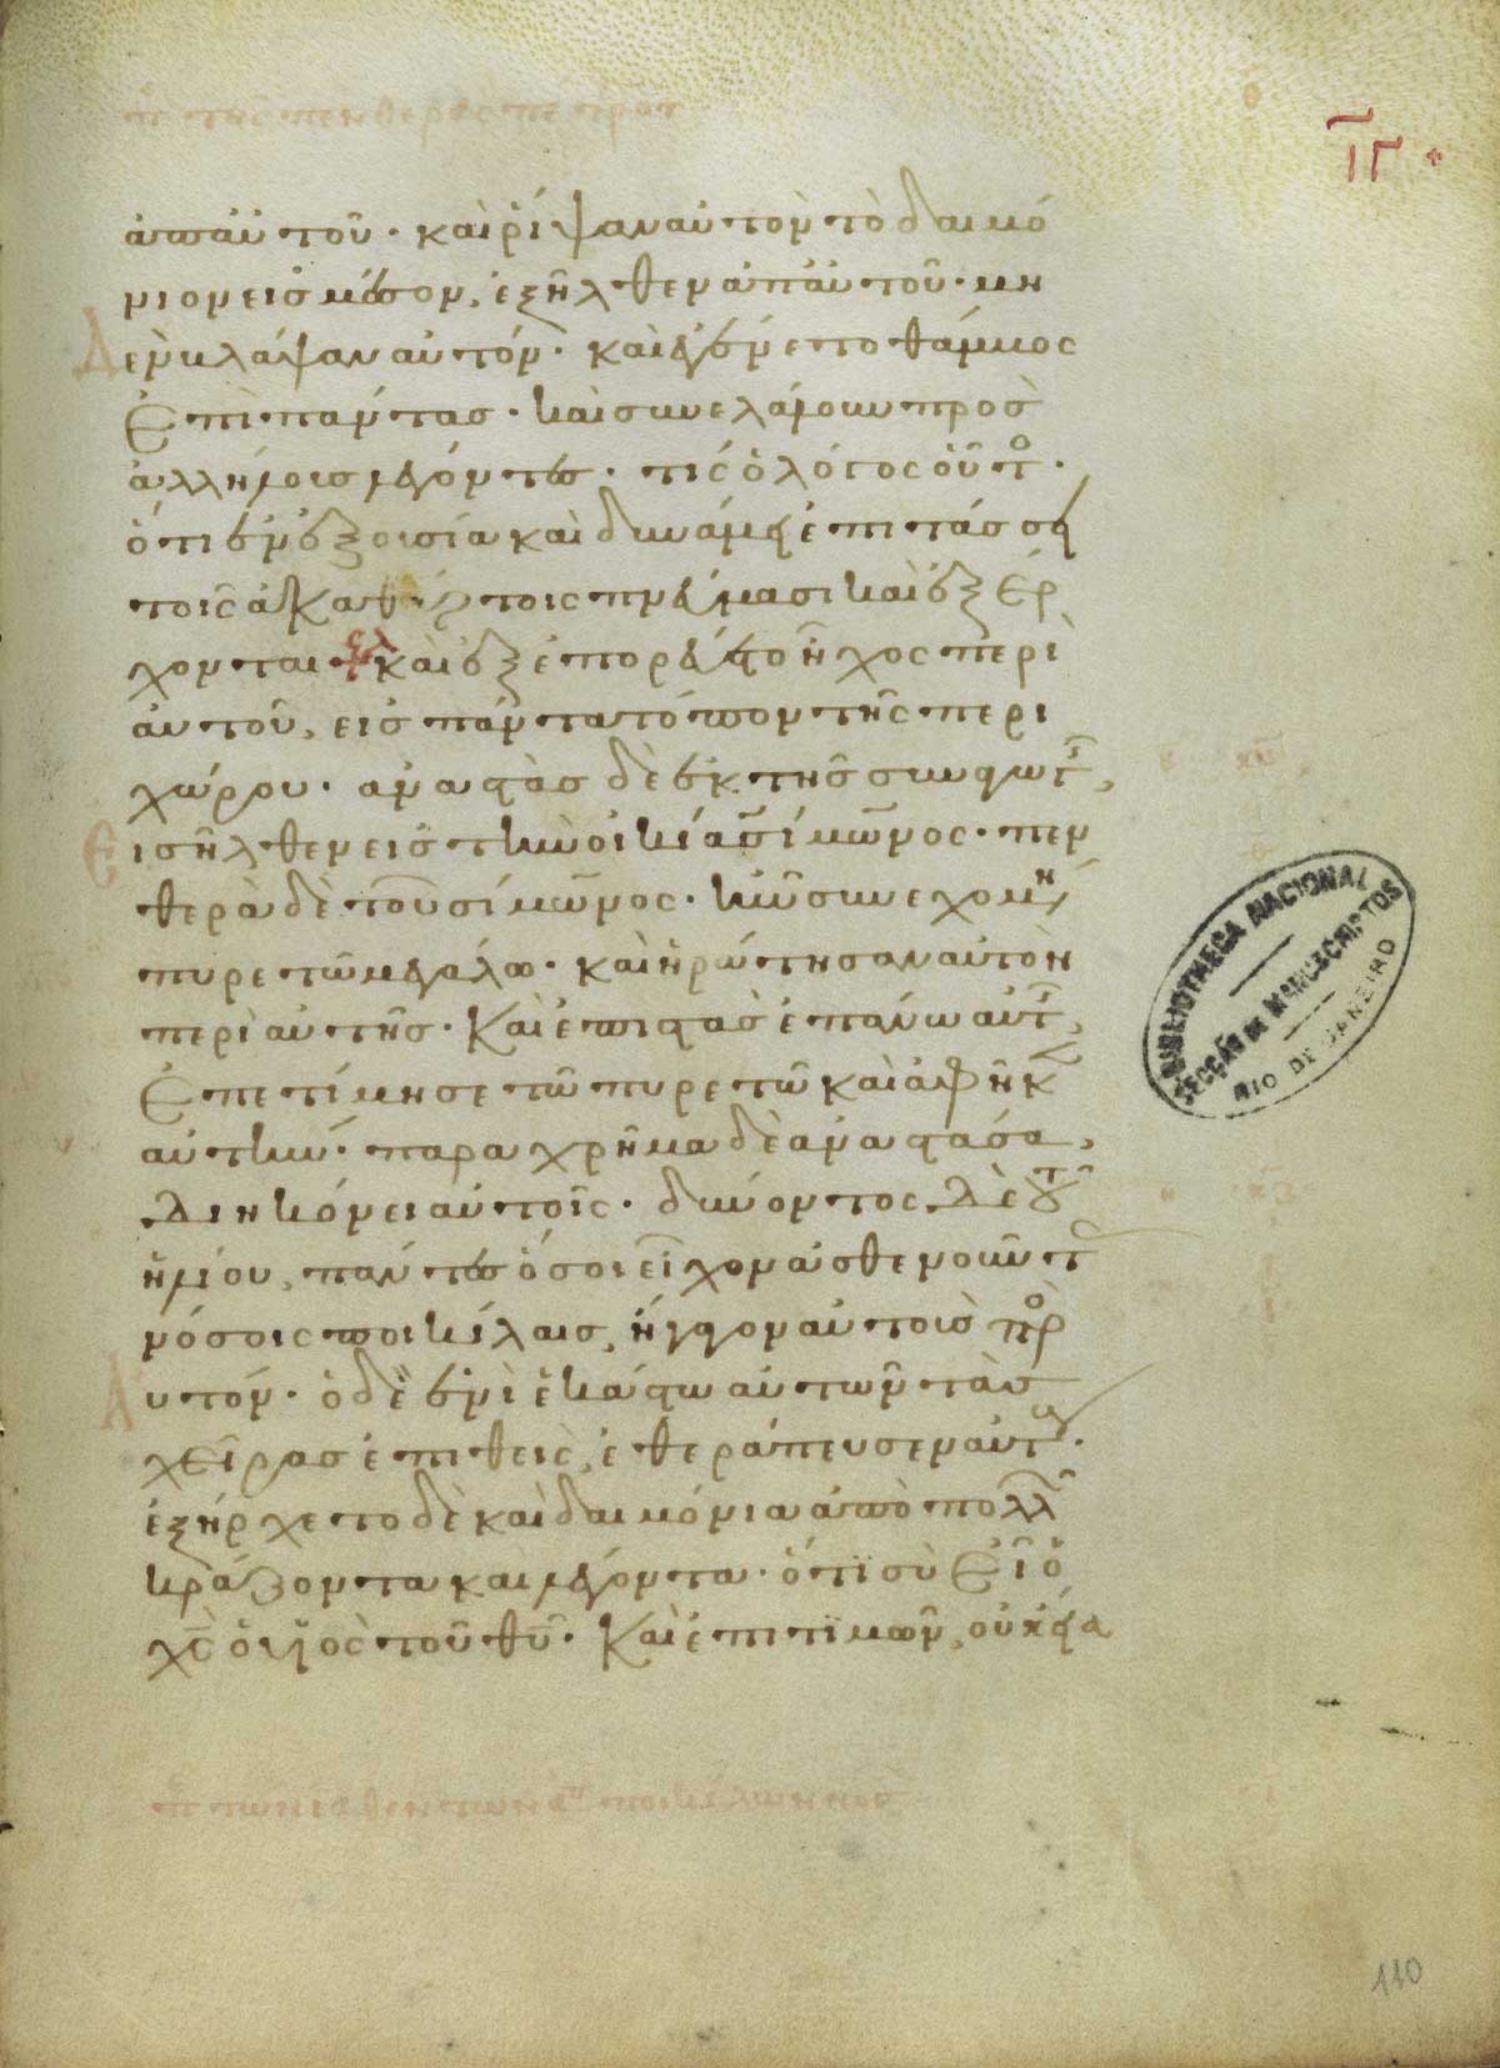 πε τῆς πενθερᾶς πετρου
ιγ
ἀπαὐτοῦ· καὶ ῥίψαν αὐτὸν τὸ δαιμό
νιον εἰς μέσον, ἐξῆλθεν ἀπαὐτοῦ· μη
δὲν βλάψαν αὐτόν· καὶ ἐγένετο θάμβος
ἐπὶ πάντας· καὶ συνελάλουν πρὸς
ἀλλήλους λέγοντες· τίς ὁ λόγος οὗτο·
ὅτι ἐν ἐξουσία καὶ δυνάμει ἐπιτάσσει
τοῖς ἀκαθάρτοις πνεύμασι καὶ ἐξέρ
χονται· καὶ ἐξεπορεύετο ἦχος περὶ
αὐτοῦ, εἰς πάντα τόπον τῆς περι
χώρου· αναστὰς δὲ ἐκ τῆς συναγωγ,
εισῆλθεν εἰς τὴν οἰκίαν σίμωνος· πεν
θερὰ δὲ τοῦ σίμωνος· ἦν συνεχομην
πυρετῶ μεγάλω· καὶ ἠρώτησαν αὐτὸν
περὶ αὐτῆς· Καὶ ἐπιστὰς ἐπάνω αὐτ,
ἐπετίμησε τῶ πυρετῶ καὶ ἀφῆκ
αὐτήν· παραχρῆμα δὲ ἀναστάσα,
διηκόνει αὐτοῖς· δύνοντος δὲ τοῦ
ἡλίου, πάντες ὅσοι εἶχον ἀσθενοῦντ
νόσοις ποικίλαις, ἤγαγον αὐτοὺς προ
αυτόν· ὁ δὲ ἑνὶ ἑκάστω αὐτῶν τὰς
χεῖρας ἐπιθεὶς, ἐθεράπευσεν αὐτου·
ἐξήρχετο δὲ καὶ δαιμόνια ἀπὸ πολλ
κράζοντα καὶ λέγοντα· ὅτι σὺ εἶ ὁ
χς ὁ υἱὸς τοῦ θυ· Καὶ ἐπιτιμῶν, οὐκ εἴα
BIBLIOTHECA NACIONAL
SECÇÃO DE MANUSCRIPTOS
RIO DE JANEIRO
110